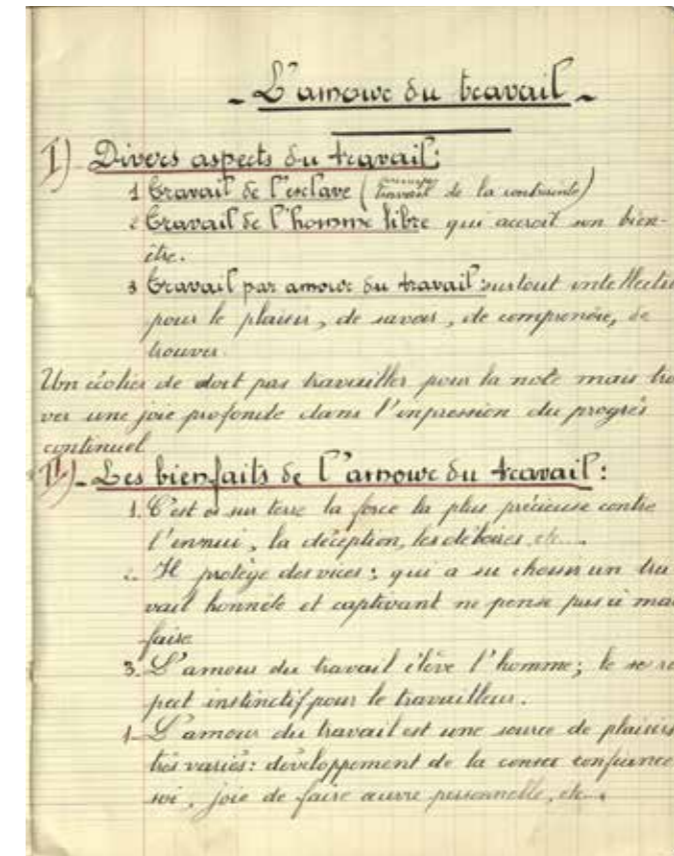 - L'amour du travail -
I) Divers aspects du travail:
1 Travail de l'esclave ( travail de la contrainte)
2 Travail de l'homme libre qui accroît son bien-
être.
3 Travail par amour du travail: surtout intellectu
pour le plaisir, de savoir, de comprendre, de
trouver.
Un écolier de doit pas travailler pour la note mais tro
ver une joie profonde dans l'impression du progrès
continuel
II)- Les bienfaits de l'amour du travail:
1. C'est sur terre la force la plus précieuse contre
l'ennui, la déception, les déboires, etc....
2. Il protège des vices: qui a su choisir un tra
vail honnête et captivant ne pense pas à mal
faire
3. L'amour du travail élève l'homme; le res
pect instinctif pour le travailleur.
4. L'amour du travail est une source de plaisirs
très variés: développement de la confiance
soi, joie de faire œuvre personnelle, etc....